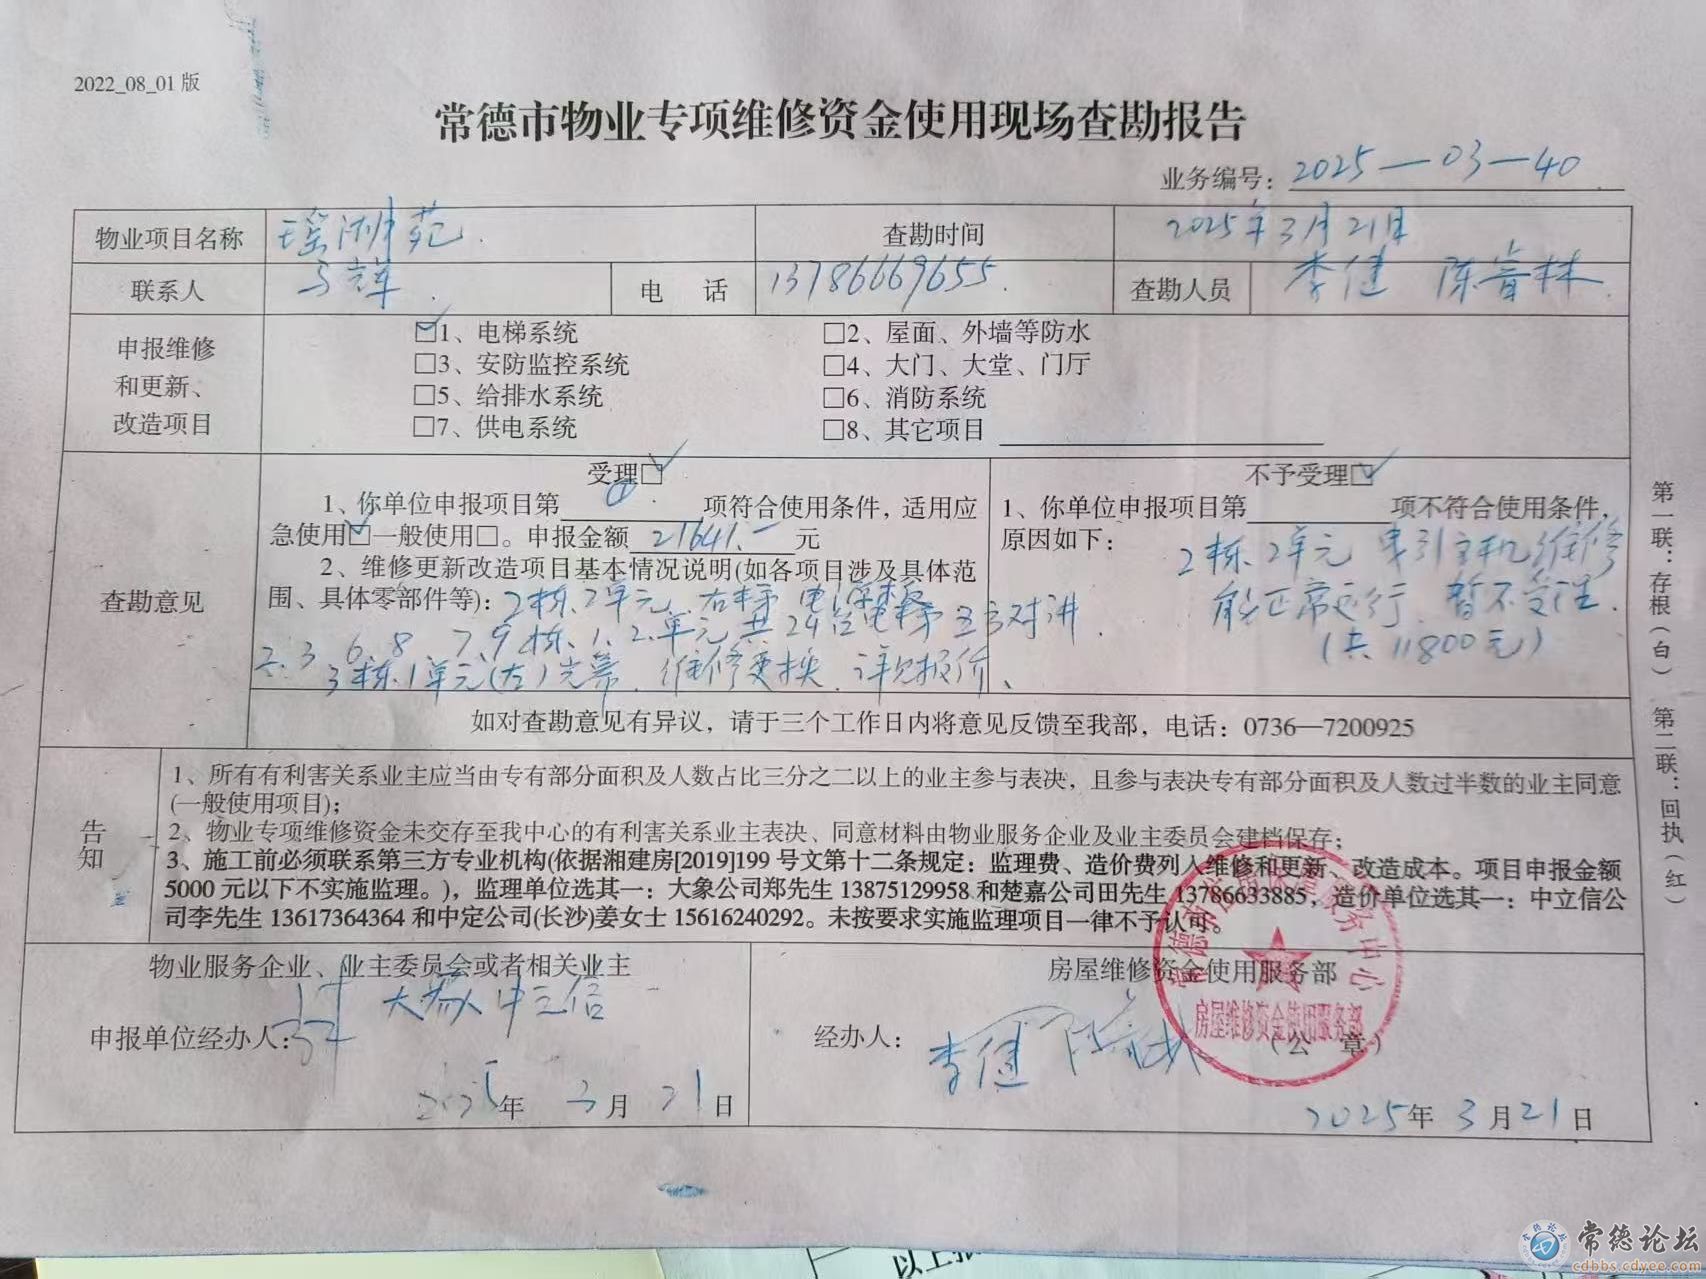 2022_08_01 版
常德市物业专项维修资金使用现场查勘报告
业务编号: 2025-03-40
物业项目名称 瑶湖苑 查勘时间 2025年3月21日
联系人 电 话 13786669655 查勘人员 李健 陈睿林
申报维修和更新、改造项目
☑1、电梯系统 □2、屋面、外墙等防水
□3、安防监控系统 □4、大门、大堂、门厅
□5、给排水系统 □6、消防系统
□7、供电系统 □8、其它项目
查勘意见
受理☑
1、你单位申报项目第 ① 项符合使用条件，适用应
急使用☑一般使用□。申报金额 21641.- 元
2、维修更新改造项目基本情况说明(如各项目涉及具体范
围、具体零部件等): 2栋、2单元、右梯
2、3、6、8、7、9栋、1、2单元共24台电梯五方对讲
3栋1单元(左)光幕、维修更换、详见报价、
不予受理☑
1、你单位申报项目第 项不符合使用条件，
原因如下: 2栋2单元曳引主机维修
能正常运行、暂不受理.
(共11800元)
如对查勘意见有异议，请于三个工作日内将意见反馈至我部，电话：0736—7200925
告知
1、所有有利害关系业主应当由专有部分面积及人数占比三分之二以上的业主参与表决，且参与表决专有部分面积及人数过半数的业主同意
(一般使用项目);
2、物业专项维修资金未交存至我中心的有利害关系业主表决、同意材料由物业服务企业及业主委员会建档保存;
3、施工前必须联系第三方专业机构(依据湘建房[2019]199 号文第十二条规定：监理费、造价费列入维修和更新、改造成本。项目申报金额
5000 元以下不实施监理。)，监理单位选其一：大象公司郑先生 13875129958 和楚嘉公司田先生 13786633885，造价单位选其一：中立信公
司李先生 13617364364 和中定公司(长沙)姜女士 15616240292。未按要求实施监理项目一律不予认可。
物业服务企业、业主委员会或者相关业主
大象 中立信
申报单位经办人:
2025年 3月 21日
房屋维修资金使用服务部
经办人: 李健 陈睿林
房屋维修资金使用服务部
(公 章)
2025年 3月21日
第一联：存根(白) 第二联：回执(红)
以上
常德论坛
cdbbs.cdyee.com